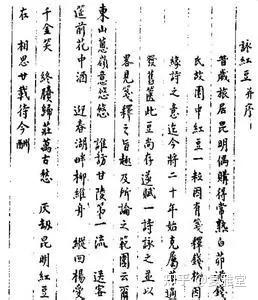 詠紅豆并序
昔歲旅居昆明偶購得常熟白茆港錢
氏故園中紅豆一粒因有箋釋錢柳因
緣詩之意迄今將二十年始克屬草適
發舊篋此豆尚存遂賦一詩詠之並以
畧見箋釋之旨趣及所論之範圍云爾
東山葱嶺意悠悠 誰訪甘陵第一流 送客
筵前花中酒 迎春湖畔柳維舟 縱回楊愛
千金笑 終賸歸莊萬古愁 灰劫昆明紅豆
在 相思廿載待今酬